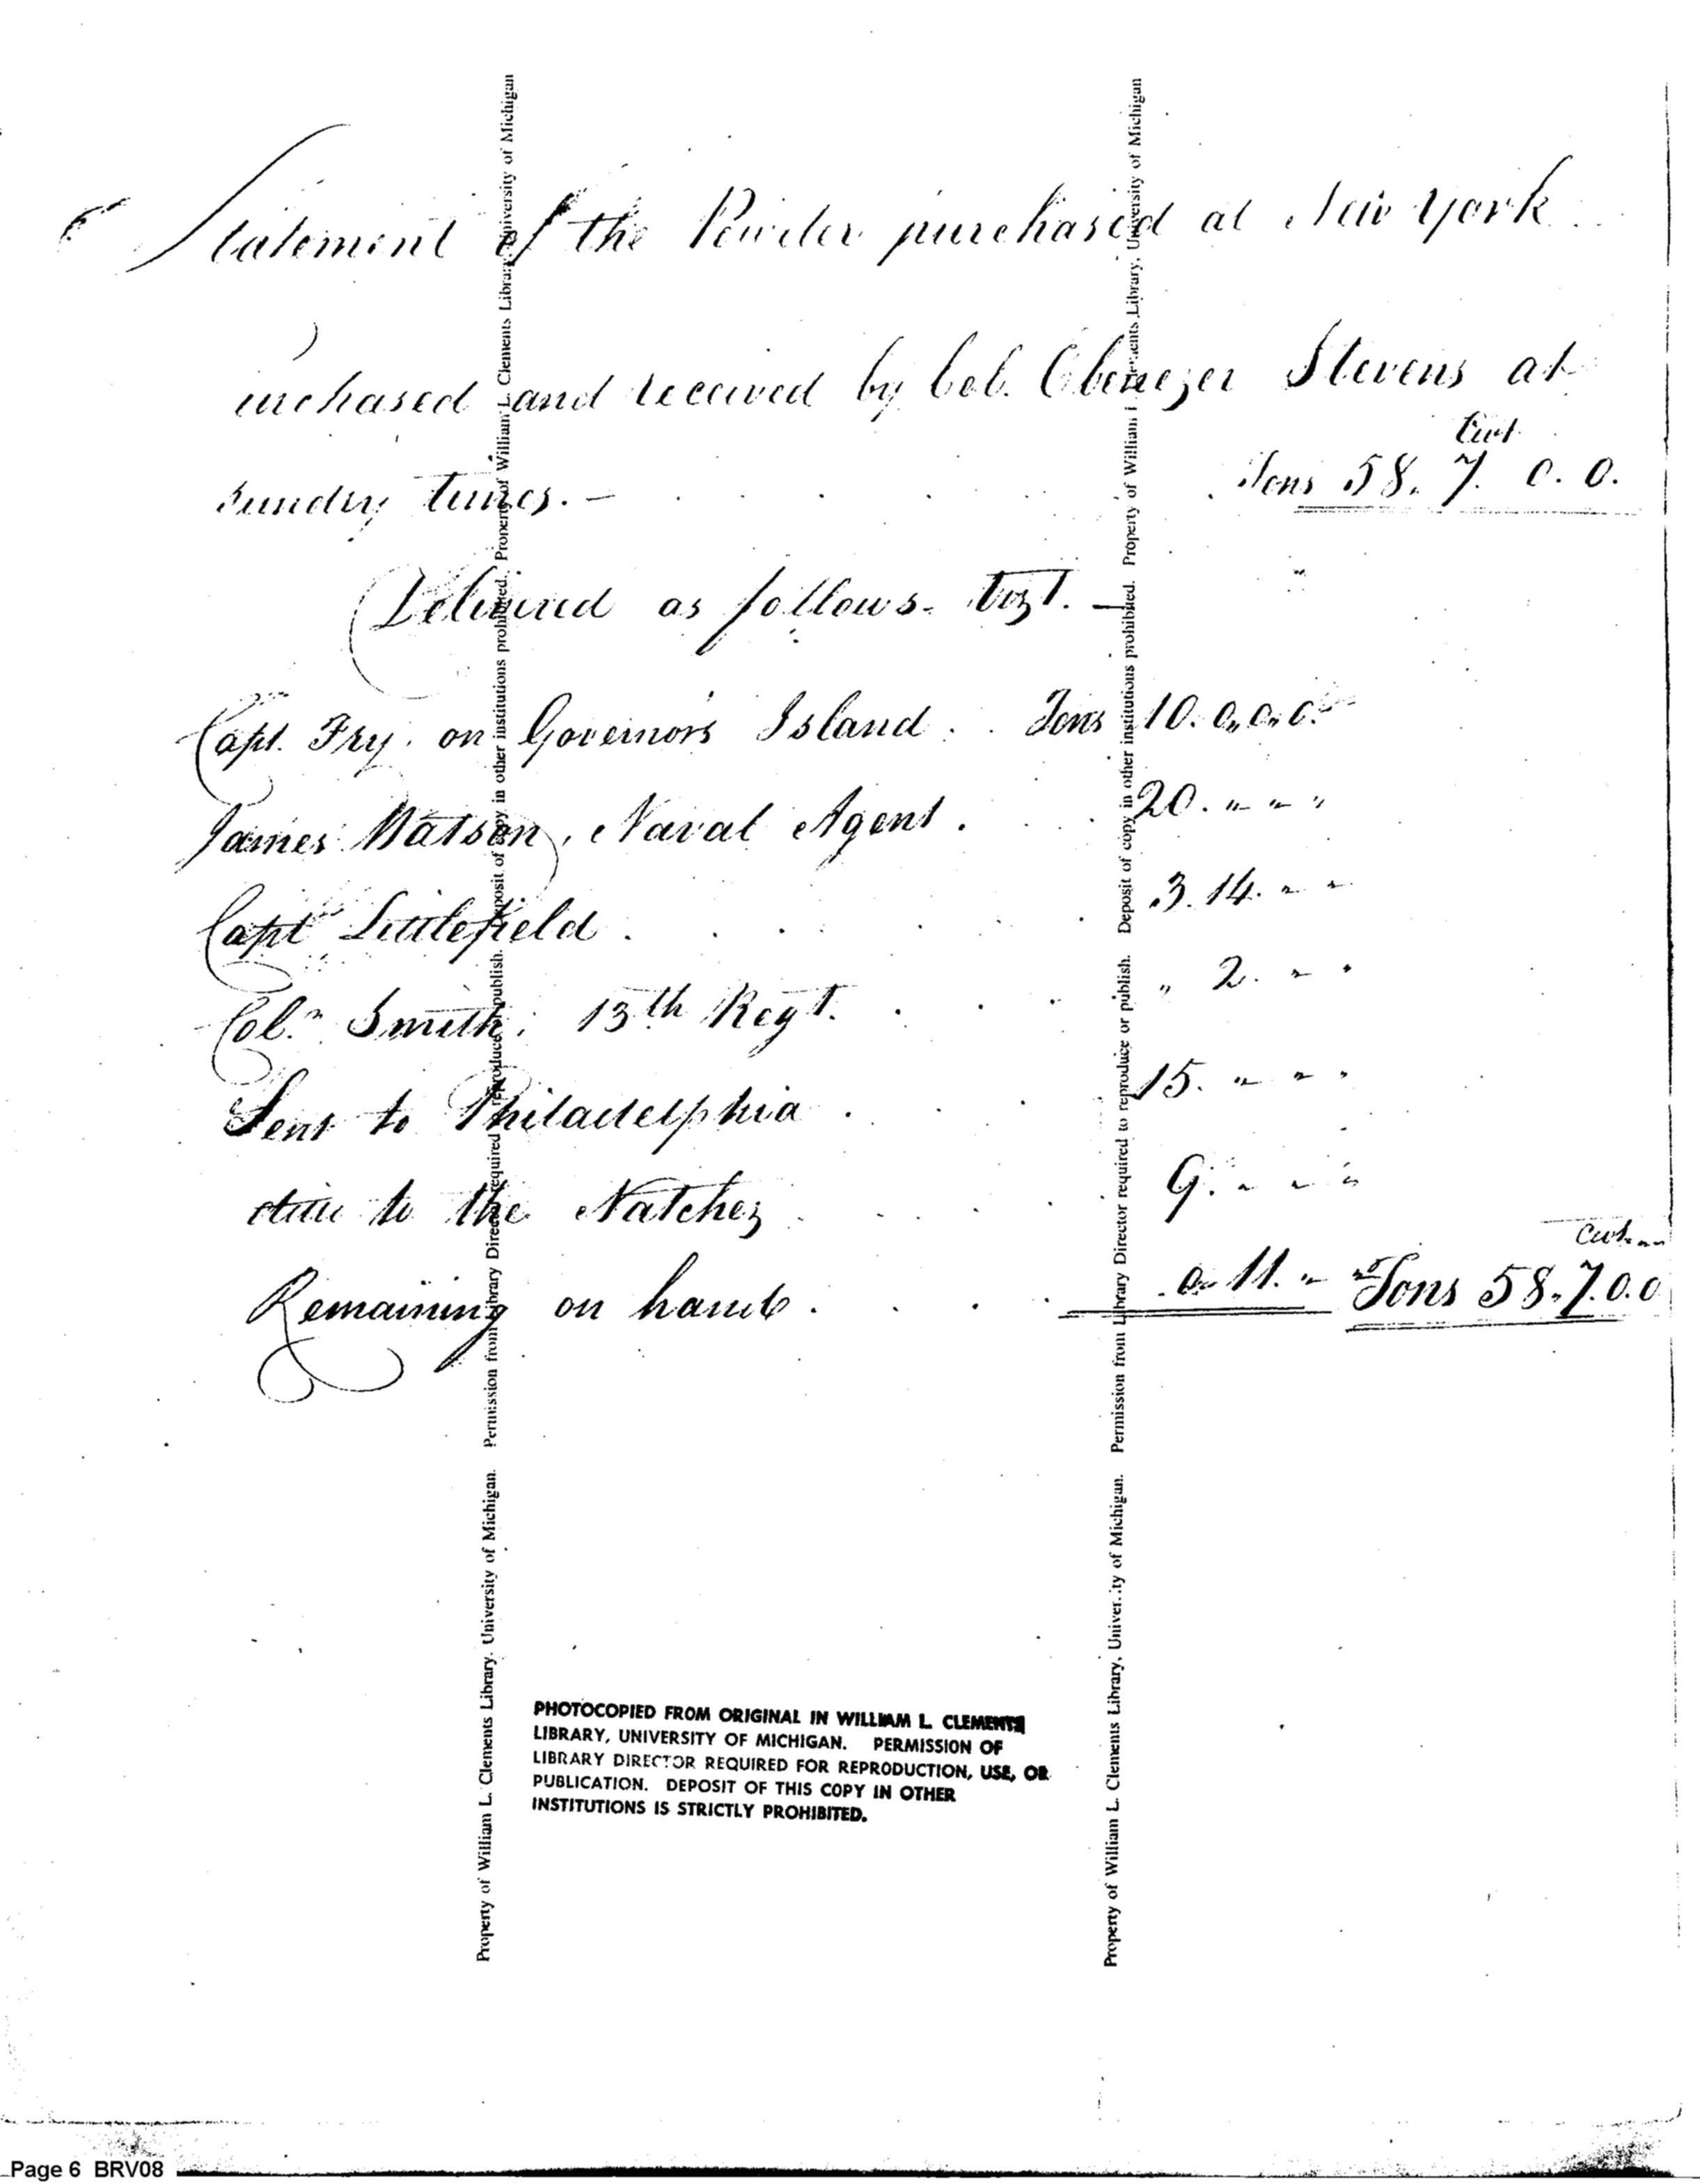 Statement of the Powder purchased at New York
urchased and received by Col. Ebenezer Stevens at
Cwt
sundry times. — . . . . . Tons 58. 7. 0. 0.
Delivered as follows. Vizt. —
Capt. Fry. on Governors Island . . Tons 10. 0,, 0,, 0.
James Watson, Naval Agent . . . . 20. " " "
Capt Littlefield . . . . . 3. 14. " "
Coln. Smith. 13th Regt. . . . " 2. " "
Sent to Philadelphia . . . 15. " " "
ditto to the Natchez . . . . 9. " " "
Cwt
Remaining on hand . . . . 0 11. " " Tons 58. 7. 0. 0
Property of William L. Clements Library, University of Michigan. Permission from Library Director required to reproduce or publish. Deposit of copy in other institutions prohibited. Property of William L. Clements Library, University of Michigan
Property of William L. Clements Library, University of Michigan. Permission from Library Director required to reproduce or publish. Deposit of copy in other institutions prohibited. Property of William L. Clements Library, University of Michigan
PHOTOCOPIED FROM ORIGINAL IN WILLIAM L. CLEMENTS
LIBRARY, UNIVERSITY OF MICHIGAN. PERMISSION OF
LIBRARY DIRECTOR REQUIRED FOR REPRODUCTION, USE, OR
PUBLICATION. DEPOSIT OF THIS COPY IN OTHER
INSTITUTIONS IS STRICTLY PROHIBITED.
Page 6 BRV08